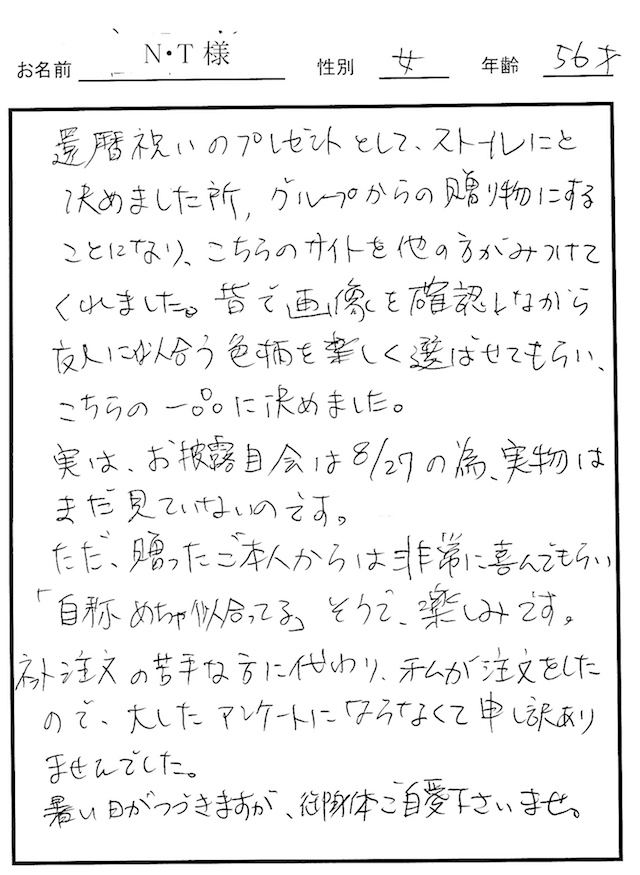 お名前 N・T 様 性別 女 年齢 56才
還暦祝いのプレゼントとして、ストールにと
決めました所、グループからの贈り物にする
ことになり、こちらのサイトを他の方がみつけて
くれました。皆で画像を確認しながら
友人に似合う色柄を楽しく選ばせてもらい、
こちらの一品に決めました。
実は、お披露目会は8/27の為、実物は
まだ見ていないのです。
ただ、贈ったご本人からは非常に喜んでもらい
「自称めちゃ似合ってる」そうで、楽しみです。
ネット注文の苦手な方に代わり、私が注文をした
ので、大したアンケートにならなくて申し訳あり
ませんでした。
暑い日がつづきますが、御身体ご自愛下さいませ。